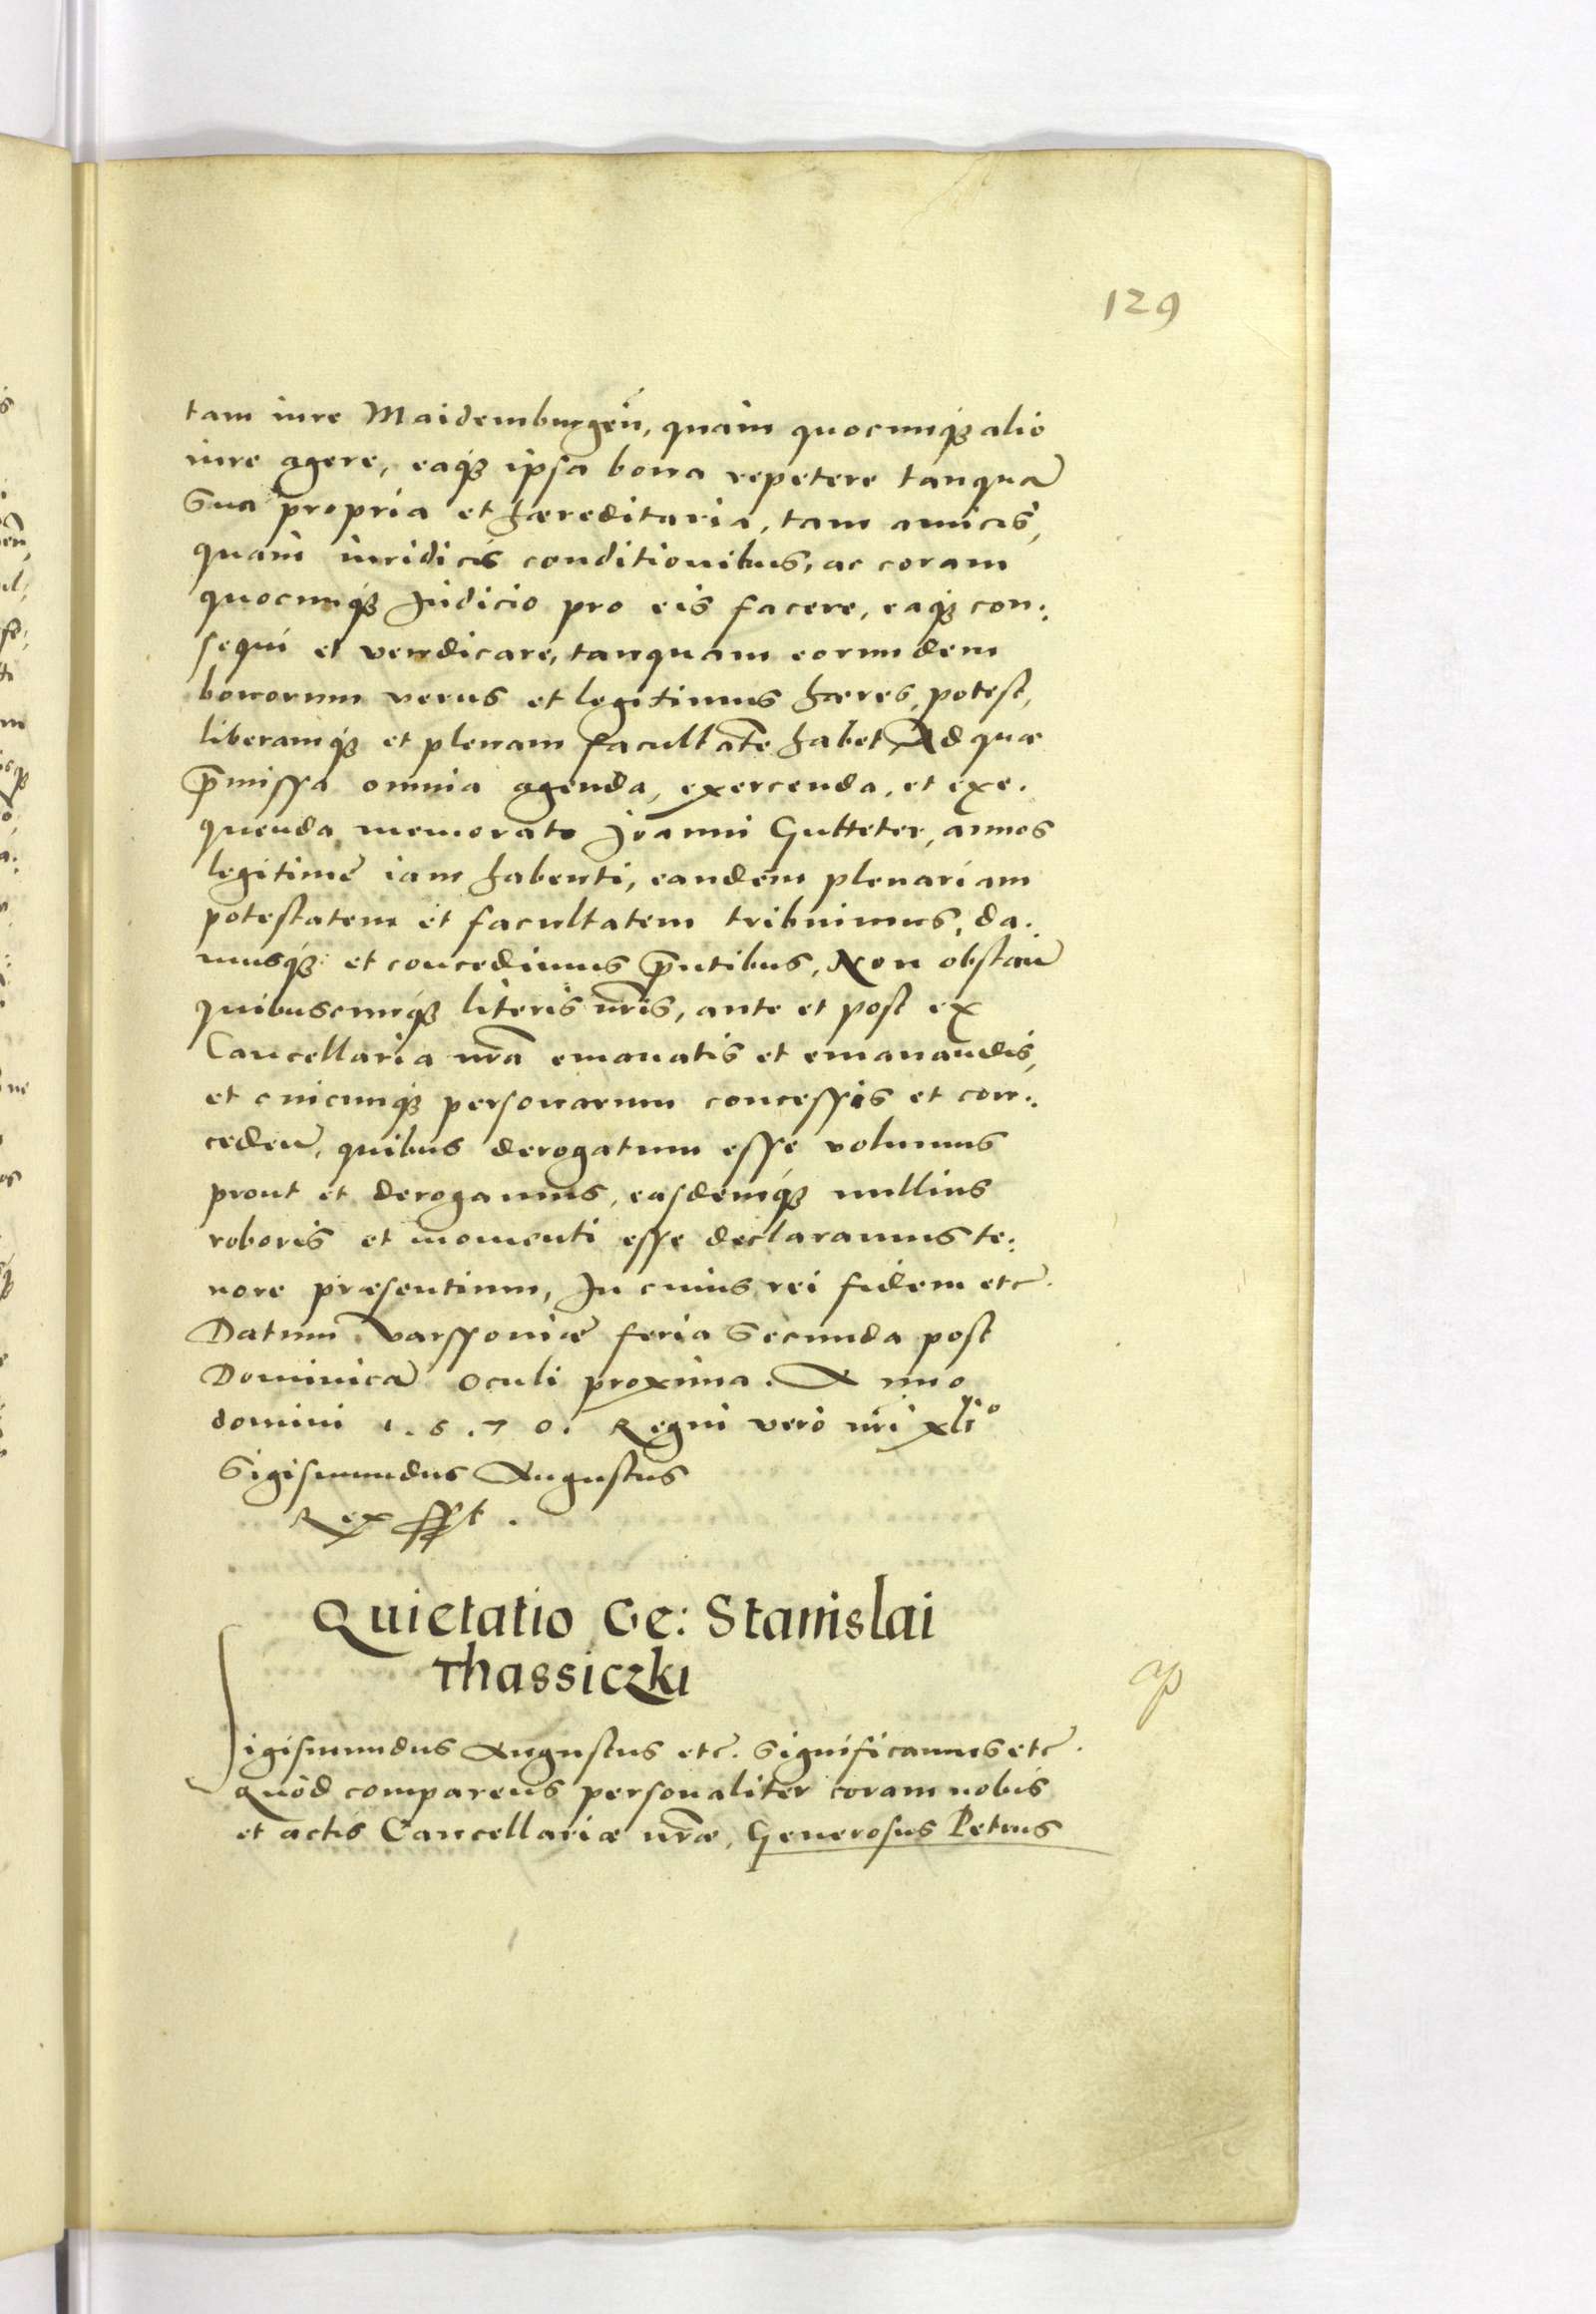 129
tam iure Maidemburgeñ, quàm quocunq́ꝫ alio
iure agere, eaq́ꝫ ipsa bona repetere tanquā
Sua propria et hæreditaria, tam amicis,
quàm iuridicis conditionibus, ac coram
quocunq́ꝫ Judicio pro eis facere, eaq́ꝫ con:
sequi et vendicare, tanquam eorundem
bonorum verus et legitimus hæres, potest,
liberamq́ꝫ et plenam facultatē habet, Ad quæ
p̄missa omnia agenda, exercenda, et exe.
quenda memorato Joanni Gutteter, annos
legitimè iam habenti, eandem plenariam
potestatem et facultatem tribuimus, da:
musq́ꝫ et concedimus p̄ntibus, Non obstañ
quibuscunq́ꝫ literis nr̄is, ante et post ex
Cancellaria nr̄a emanatis et emanandis,
et cuicunq́ꝫ personarum concessis et con:
cedeñ, quibus derogatum esse volumus
prout et derogamus, easdemq́ꝫ nullius
roboris et momenti esse declaramus te:
nore præsentium, In cuius rei fidem etc̄.
Datum Varssouiæ feria Secunda post
Dominicā Oculi proxima. Anno
domini 1.5.70. Regni verò nr̄i xliᵒ
Sigismundus Augustus
Rex sspt.
Quietatio Ge: Stanislai
Thassiczki
Sigismundus Augustus etc̄. Significamus etc̄.
Quòd comparens personaliter coram nobis
et actis Cancellariæ nr̄æ, Generosus Petrus